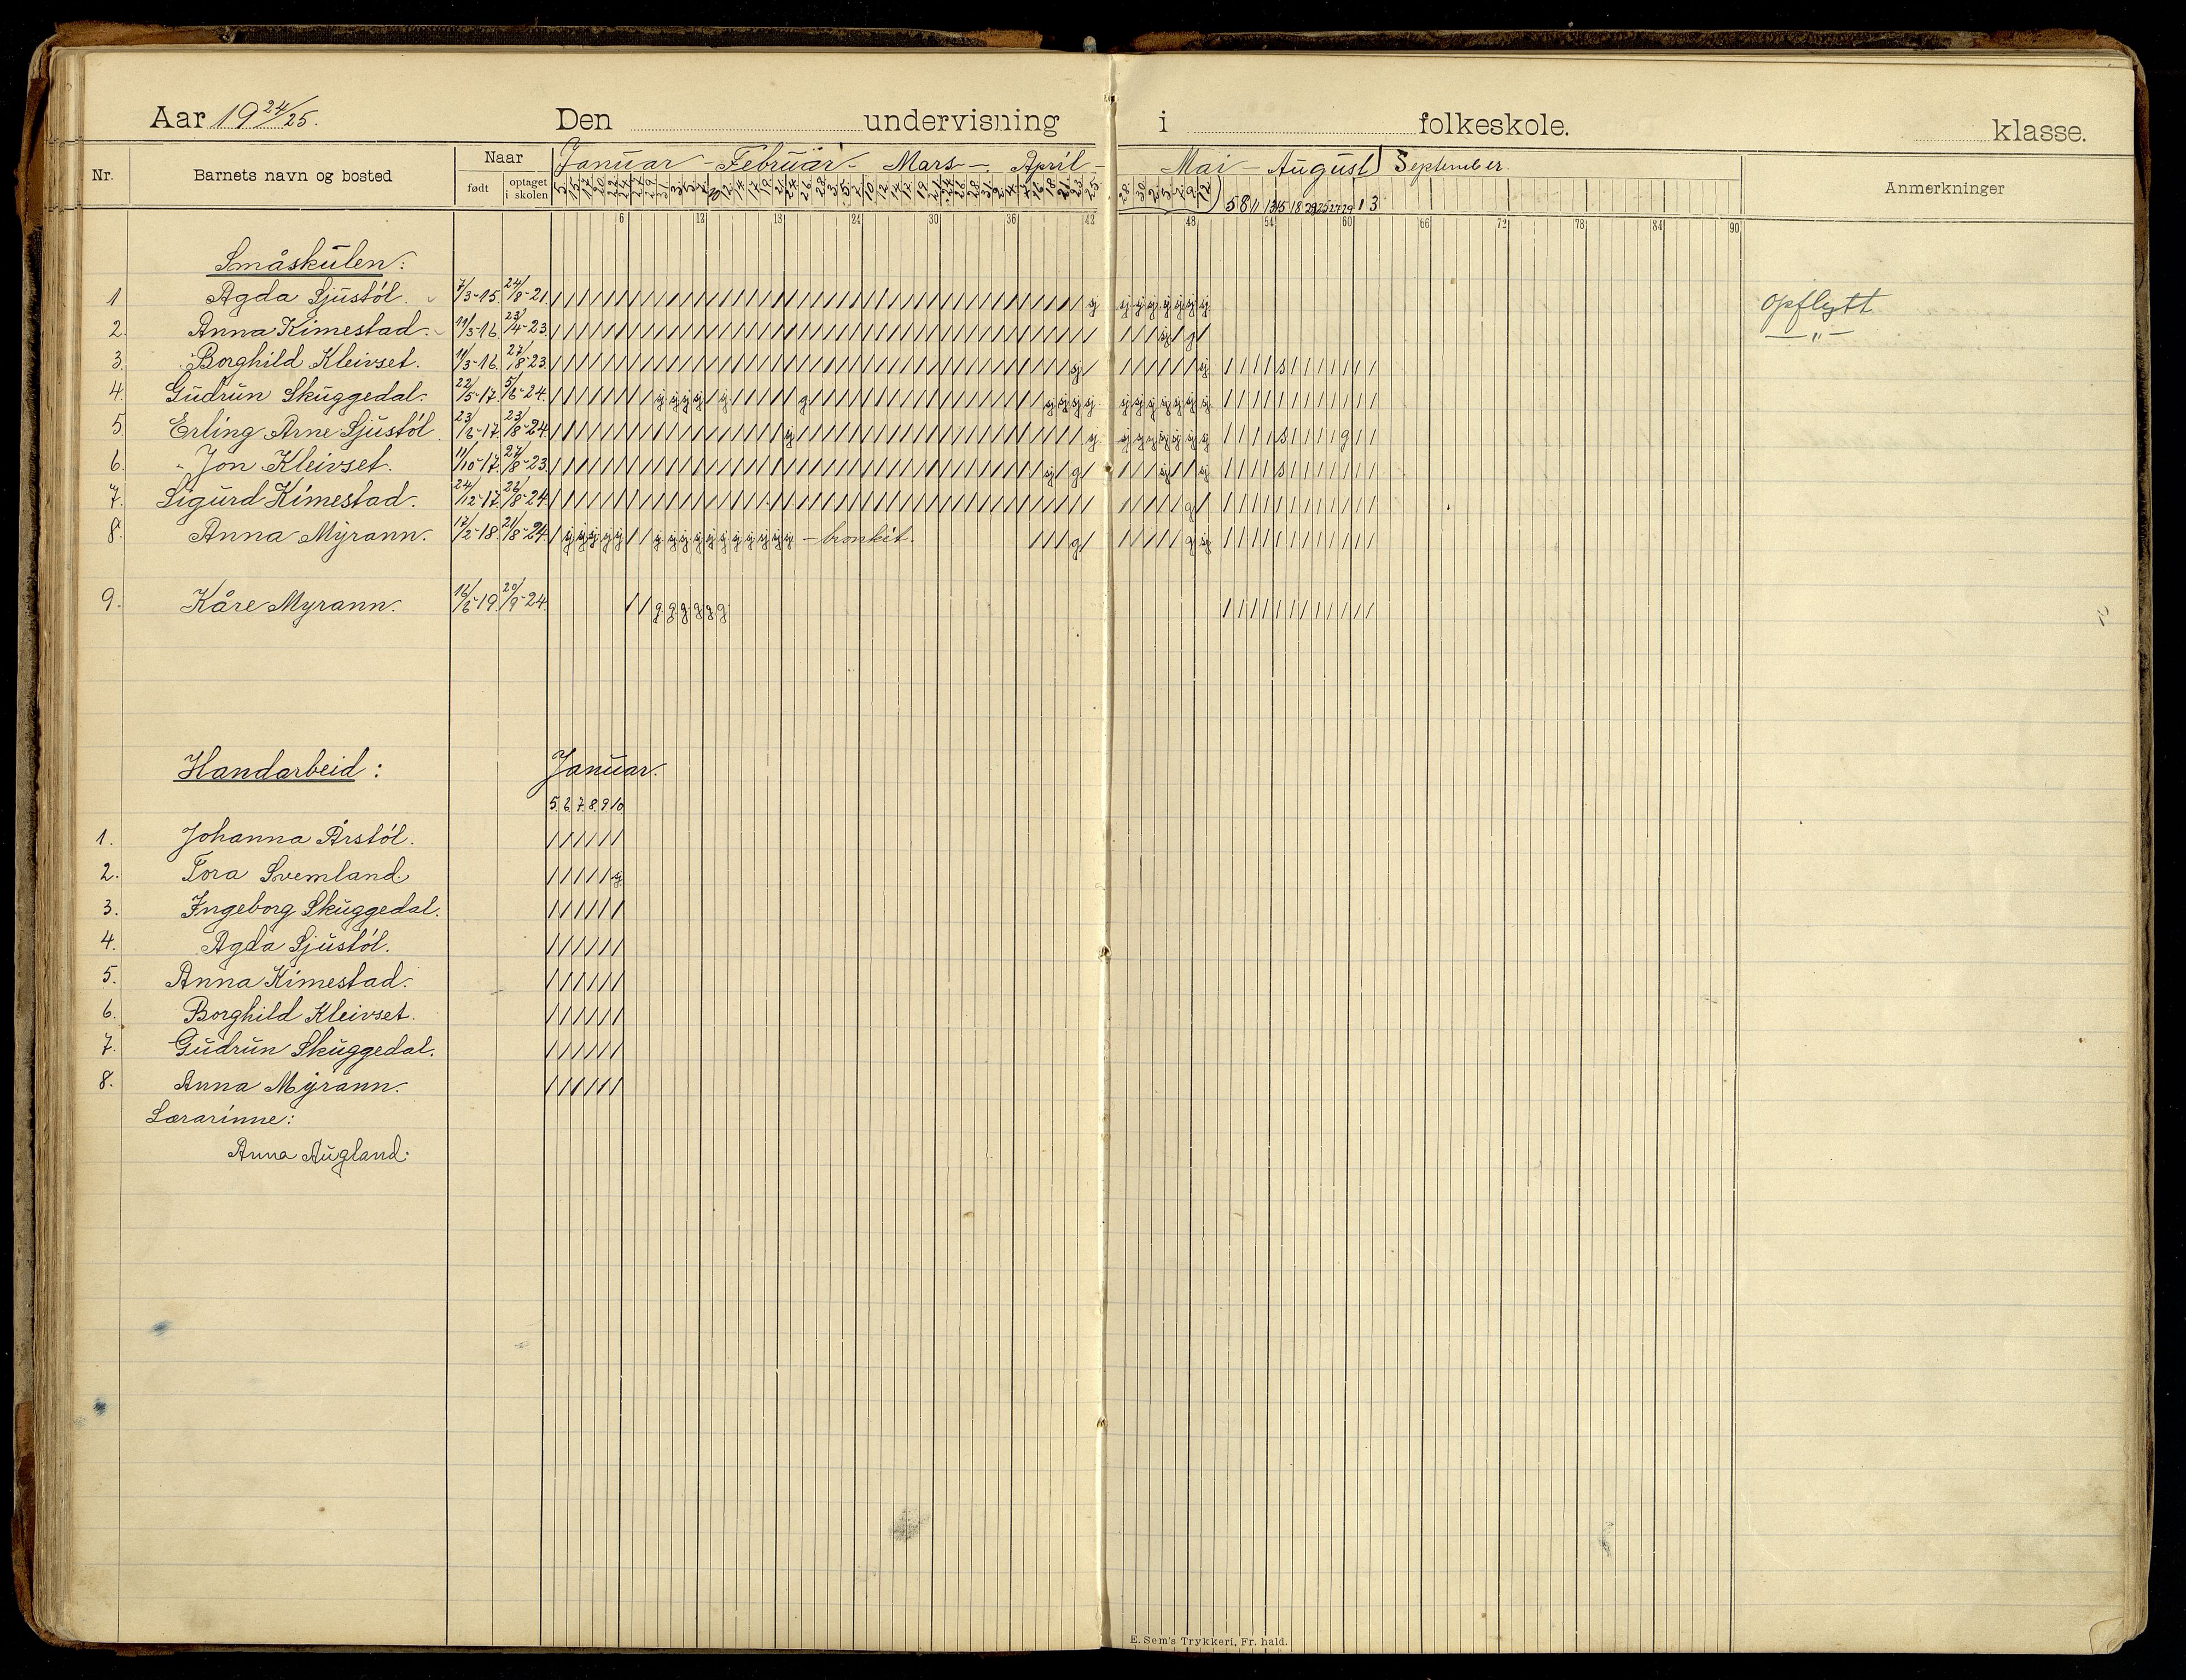 Aar 19 24/25. Den undervisning i folkeskole. klasse.
Nr. Barnets navn og bosted Naar født optaget i skolen Januar - Februar - Mars - April - Mai - August September Anmerkninger
5 8 11 13 15 18 25 27 29 1 3
6 12 13 24 30 36 42 48 54 60 66 72 78 84 90
Småskulen:
1 Agda Sjustöl. 7/3-15. 24/8-21. opflytt
2. Anna Kimestad. 11/3-16 23/4-23. — „ —
3. Borghild Kleivset. 11/3-16. 27/8-23.
4. Gudrun Skuggedal. 22/5-17. 5/6-24.
5 Erling Arne Sjustöl. 23/6-17. 23/8-24.
6. Jon Kleivset. 11/10-17. 27/8-23.
7. Sigurd Kimestad. 24/12-17. 26/8-24.
8. Anna Myrann. 17/2-18. 21/8-24. - bronkit.
9. Kåre Myrann. 16/6-19. 20/9-24.
Handarbeid: Januar.
5. 6. 7. 8. 9 10
1. Johanna Årstöl.
2. Tora Svemland.
3. Ingeborg Skuggedal.
4. Agda Sjustöl.
5. Anna Kimestad.
6. Borghild Kleivset.
7. Gudrun Skuggedal.
8. Anna Myrann.
Lærarinne:
Anna Augland.
E. Sem's Trykkeri, Fr. hald.